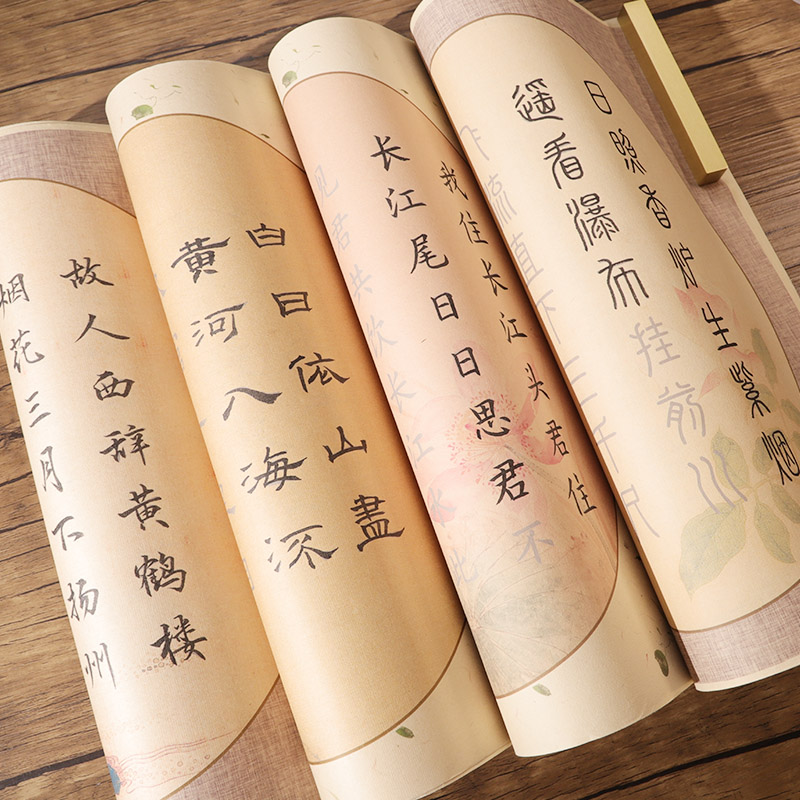 日照香炉生紫烟
遥看瀑布挂前川
飞流直下三千尺
我住长江头君住
长江尾日日思君不
见君共饮长江水此
白日依山盡
黄河入海流
故人西辞黄鹤楼
烟花三月下扬州